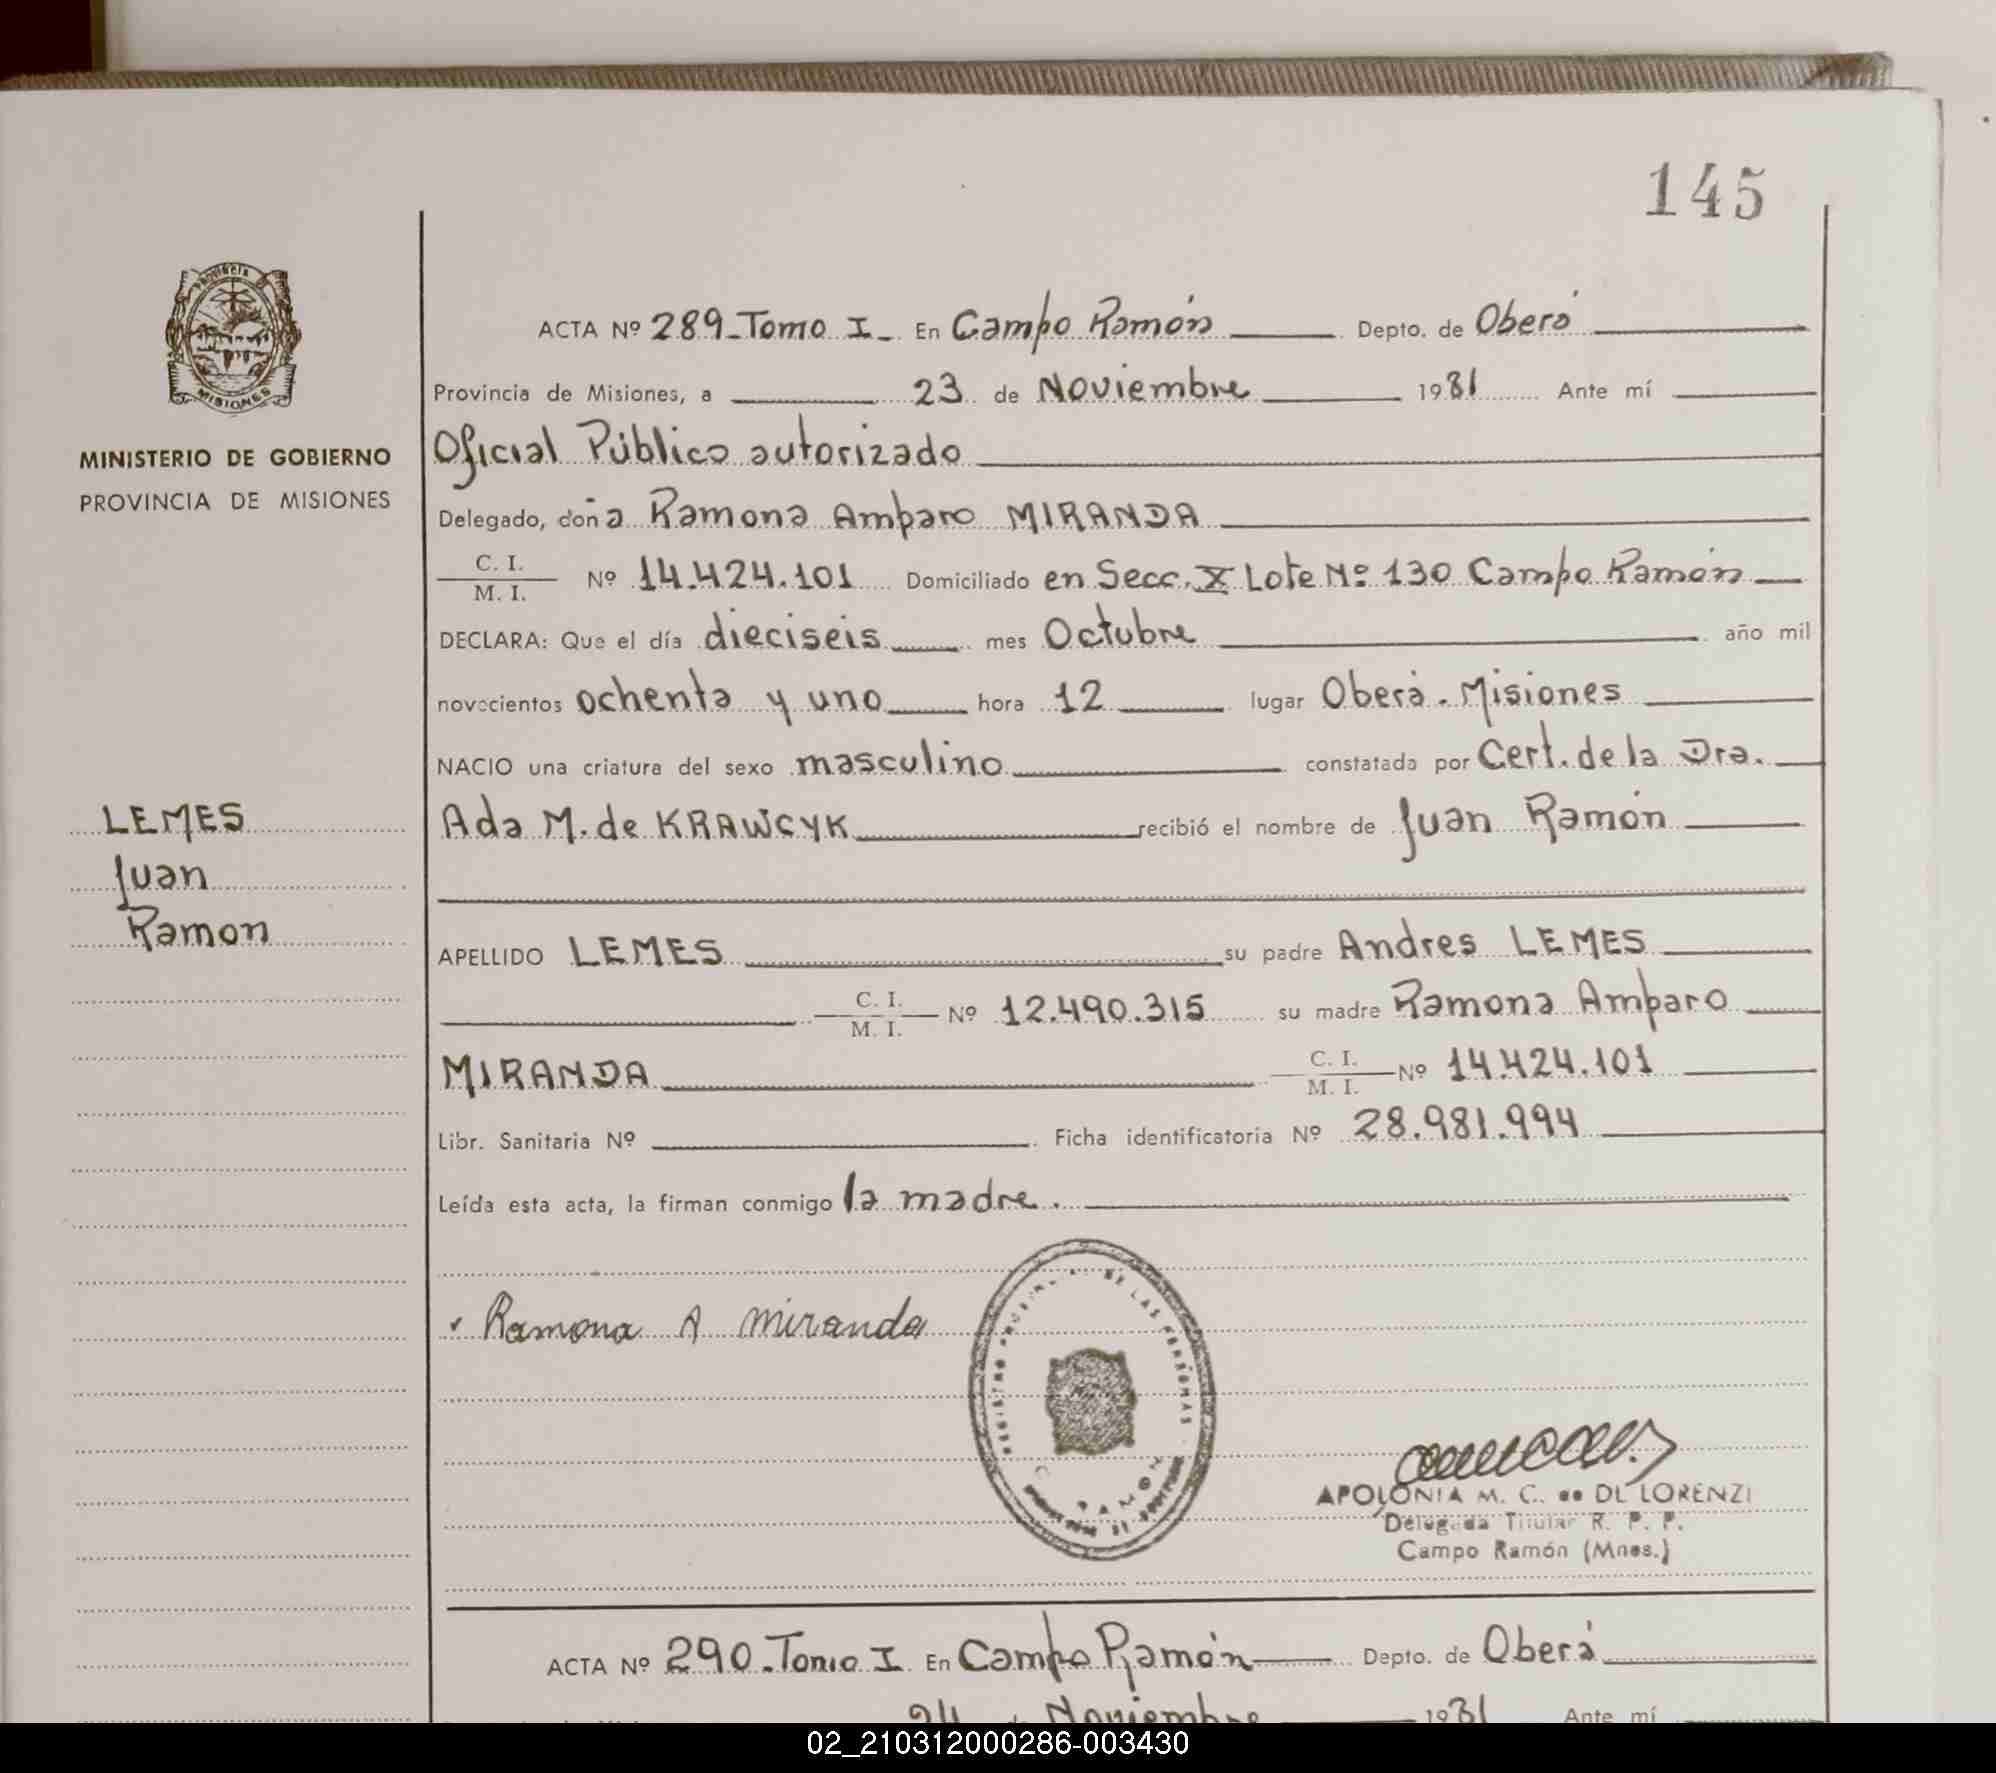 145
PROVINCIA
MISIONES
MINISTERIO DE GOBIERNO
PROVINCIA DE MISIONES
ACTA Nº 289_Tomo I_ En Campo Ramón Depto. de Oberá
Provincia de Misiones, a 23 de Noviembre 1981 Ante mí
Oficial Público autorizado
Delegado, doña Ramona Amparo MIRANDA
C. I.
M. I. Nº 14.424.101 Domiciliado en Secc. X Lote Nº 130 Campo Ramón
DECLARA: Que el día dieciseis mes Octubre año mil
novecientos ochenta y uno hora 12 lugar Oberá. Misiones
NACIO una criatura del sexo masculino constatada por Cert. de la Dra.
Ada M. de KRAWCYK recibió el nombre de Juan Ramón
LEMES
Juan
Ramon
APELLIDO LEMES su padre Andres LEMES
C. I.
M. I. Nº 12.490.315 su madre Ramona Amparo
MIRANDA C. I.
M. I. Nº 14.424.101
Libr. Sanitaria Nº Ficha identificatoria Nº 28.981.994
Leída esta acta, la firman conmigo la madre.
Ramona A Miranda
REGISTRO DE LAS PERSONAS
RAMON
APOLONIA M. C. de DE LORENZI
Delegada Titular R. P. P.
Campo Ramón (Mnes.)
ACTA Nº 290_Tomo I En Campo Ramón Depto. de Oberá
24 de Noviembre 1981 Ante mí
02_210312000286-003430